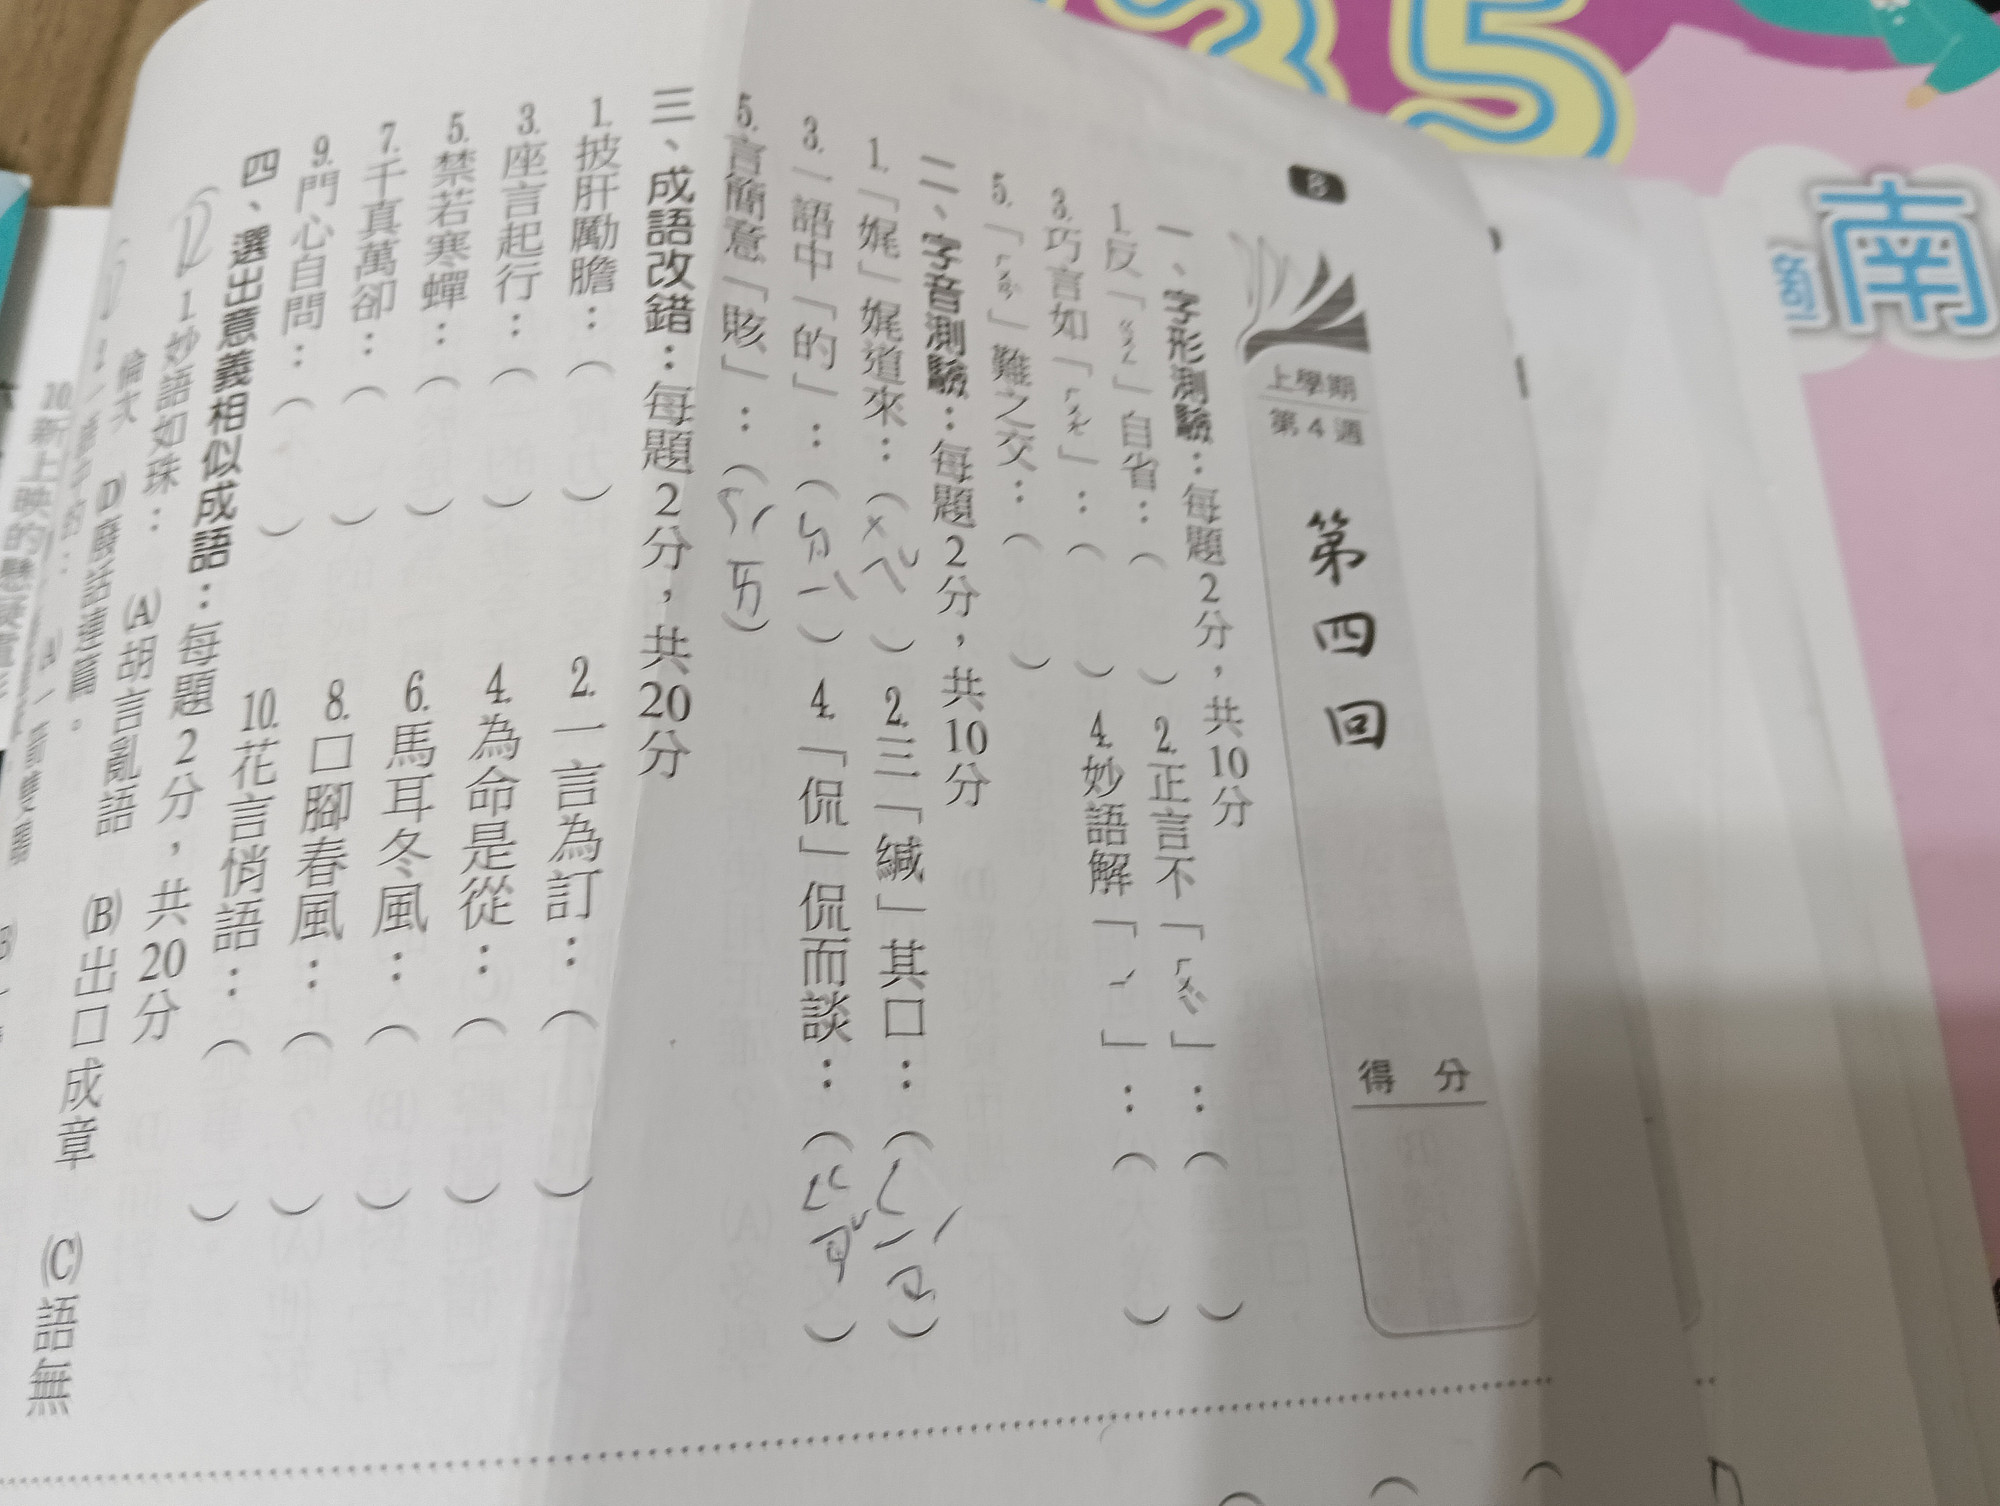 35
南
8
上學期
第4週
第四回
得分
一、字形測驗：每題2分，共10分
1.反「ㄒㄧㄥˇ」自省：（　）
2.正言不「ㄏㄨㄟˋ」：（　）
3.巧言如「ㄏㄨㄤˊ」：（　）
4.妙語解「ㄧˊ」：（　）
5.「ㄏㄨㄢˋ」難之交：（　）
二、字音測驗：每題2分，共10分
1.「娓」娓道來：（ㄨㄟˇ）
2.三「緘」其口：（ㄐㄧㄢ）
3.一語中「的」：（ㄉㄧˋ）
4.「侃」侃而談：（ㄎㄢˇ）
5.言簡意「賅」：（ㄍㄞ）
三、成語改錯：每題2分，共20分
1.披肝勵膽：（　）
2.一言為訂：（　）
3.座言起行：（　）
4.為命是從：（　）
5.禁若寒蟬：（　）
6.馬耳冬風：（　）
7.千真萬卻：（　）
8.口腳春風：（　）
9.門心自問：（　）
10.花言悄語：（　）
四、選出意義相似成語：每題2分，共20分
1.妙語如珠：　(A)胡言亂語　(B)出口成章　(C)語無
倫次　(D)廢話連篇。